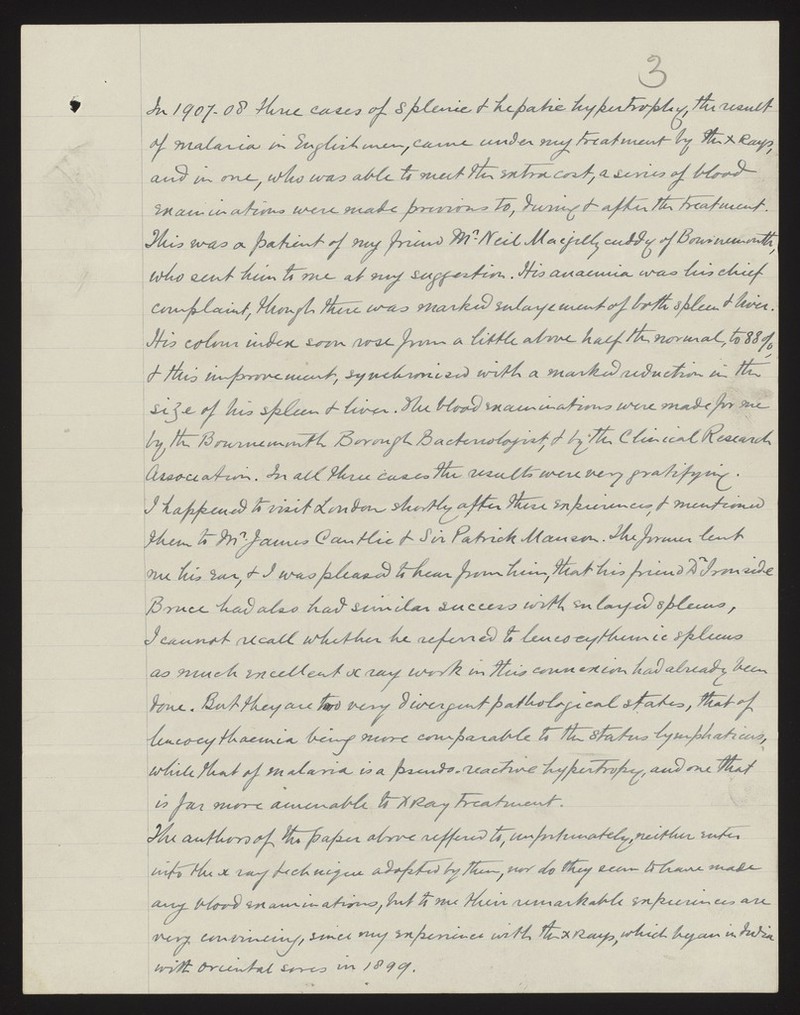 3
In 1907-08 three cases of splenic & hepatic hypertrophy, the result
of malaria in Englishmen, came under my treatment by the X Rays,
and in one, who was able to meet the extra cost, a series of blood
examinations were made previous to, during & after the treatment.
This was a patient of my friend Mr. Neil Macgillycuddy of Bournemouth,
who sent him to me at my suggestion. His anaemia was his chief
complaint, though there was marked enlargement of both spleen & liver.
His colour index soon rose from a little above half the normal, to 88%,
& this improvement, synchronised with a marked reduction in the
size of his spleen & liver. The blood examinations were made for me
by the Bournemouth Borough Bacteriologist, & by the Clinical Research
Association. In all three cases the results were very gratifying.
I happened to visit London shortly after these experiences, & mentioned
them to Mr. James Cantlie & Sir Patrick Manson. The former lent
me his ear, & I was pleased to hear from him, that his friend Dr. Ironside
Bruce had also had similar success with enlarged spleens,
I cannot recall whether he referred to leucocythemic spleens
as much excellent x ray work in this connexion had already been
done. But they are two very divergent pathological states, that of
leucocythaemia being more comparable to the status lymphaticus,
while that of malaria is a pseudo-reactive hypertropy, and one that
is far more amenable to X Ray treatment.
The authors of the paper above reffered to, unfortunately, neither enter
into the x ray technique adopted by them, nor do they seem to have made
any blood examinations, but to me their remarkable experiences are
very convincing, since my experience with the X Rays, which began in India
with oriental sores in 1899.